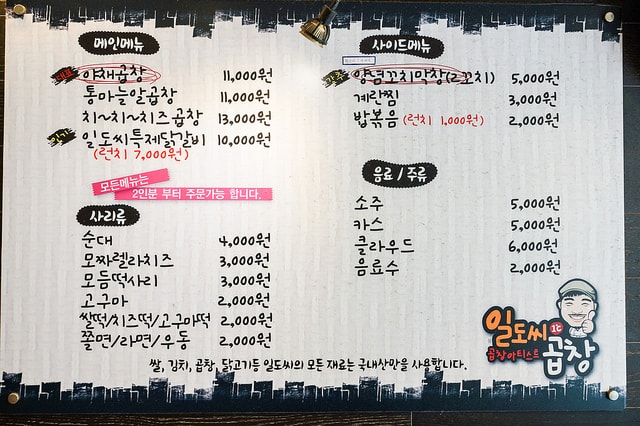 메인메뉴
대표 야채곱창 11,000원
통마늘알곱창 11,000원
치~치~치즈곱창 13,000원
일도씨특제닭갈비 10,000원
(런치 7,000원)
모든메뉴는
2인분 부터 주문가능 합니다.
사리류
순대 4,000원
모짜렐라치즈 3,000원
모듬떡사리 3,000원
고구마 2,000원
쌀떡/치즈떡/고구마떡 2,000원
쫄면/라면/우동 2,000원
사이드메뉴
양념꼬치막창(2꼬치) 5,000원
계란찜 3,000원
밥볶음 (런치 1,000원) 2,000원
음료/주류
소주 5,000원
카스 5,000원
클라우드 6,000원
음료수 2,000원
쌀, 김치, 곱창, 닭고기등 일도씨의 모든 재료는 국내산만을 사용합니다.
일도씨 1℃
곱창아티스트 곱창